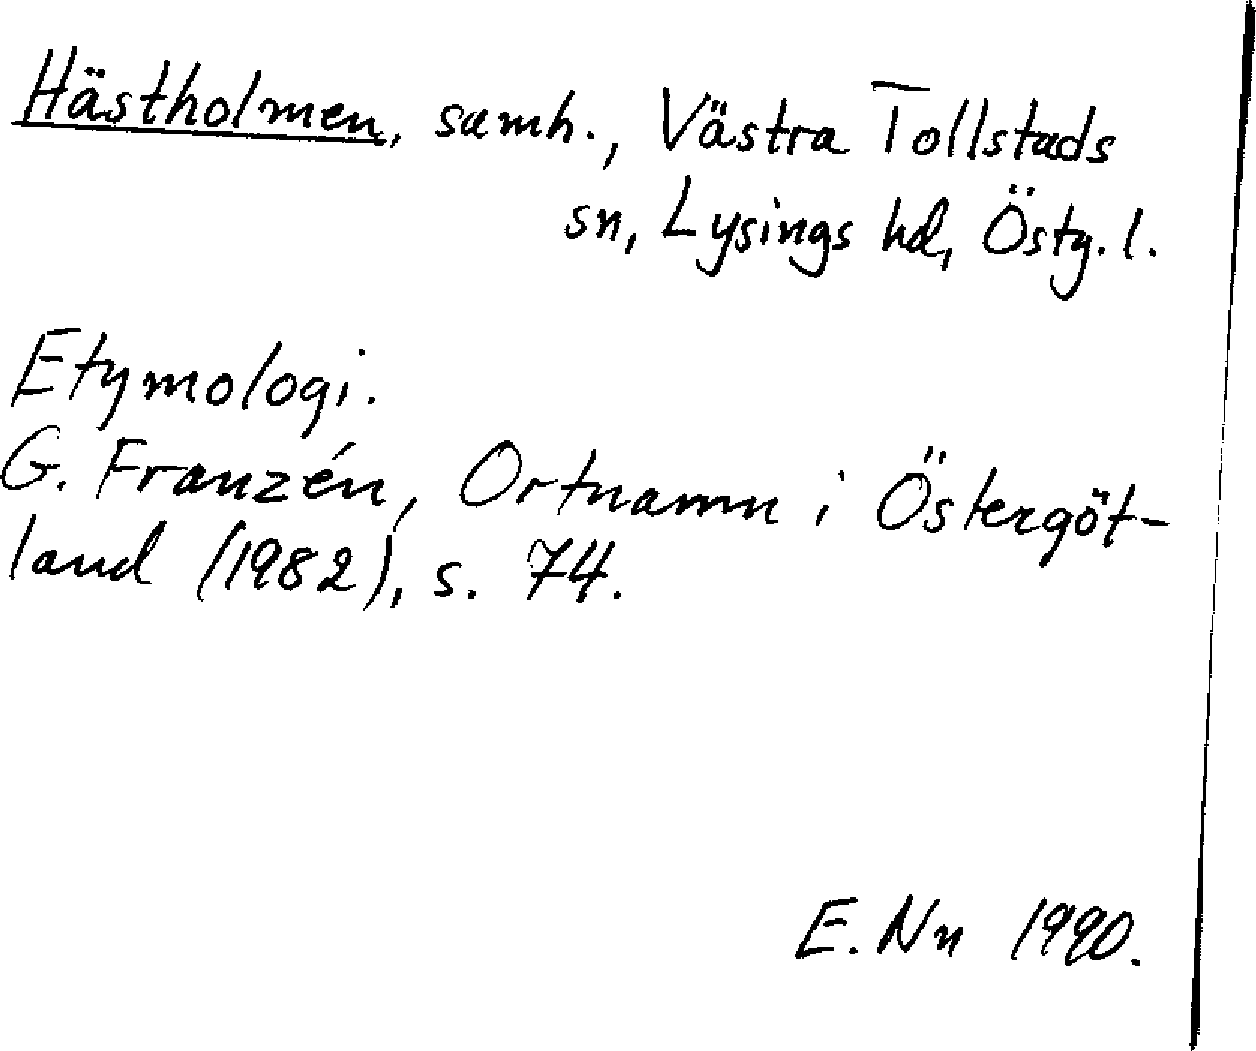 Hästholmen, samh., Västra Tollstads
sn, Lysings hd, Östg. l.
Etymologi.
G. Franzén, Ortnamn i Östergöt-
land (1982), s. 74.
E. Nn 1990.